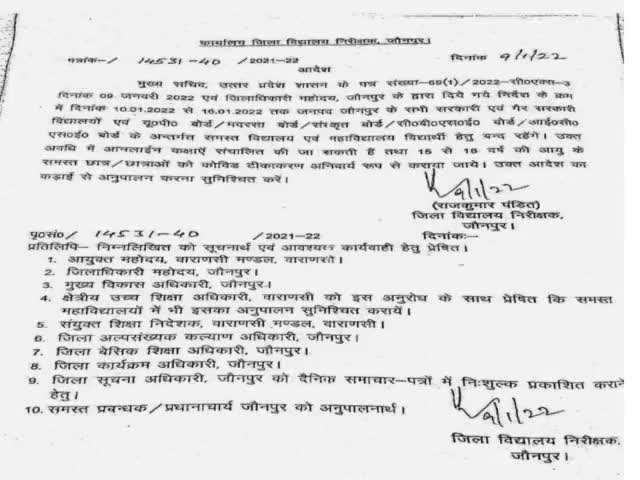 कार्यालय जिला विद्यालय निरीक्षक, जौनपुर।
पत्रांक-/ 14531-40 /2021-22 दिनांक 9/1/22
आदेश
मुख्य सचिव, उत्तर प्रदेश शासन के पत्र संख्या-69(1)/2022-सी०एक्स-3
दिनांक 09 जनवरी 2022 एवं जिलाधिकारी महोदय, जौनपुर के द्वारा दिये गये निर्देश के क्रम
में दिनांक 10.01.2022 से 16.01.2022 तक जनपद जौनपुर के सभी सरकारी एवं गैर सरकारी
विद्यालयों एवं यू०पी० बोर्ड/मदरसा बोर्ड/संस्कृत बोर्ड/सी०बी०एस०ई० बोर्ड/आई०सी०
एस०ई० बोर्ड के अन्तर्गत समस्त विद्यालय एवं महाविद्यालय विद्यार्थी हेतु बन्द रहेंगे। उक्त
अवधि में आनलाईन कक्षाएँ संचालित की जा सकती हैं तथा 15 से 18 वर्ष की आयु के
समस्त छात्र/छात्राओं को कोविड टीकाकरण अनिवार्य रूप से कराया जाये। उक्त आदेश का
कड़ाई से अनुपालन करना सुनिश्चित करें।
9/1/22
(राजकुमार पंडित)
जिला विद्यालय निरीक्षक,
जौनपुर।
पृ०सं०/ 14531-40 /2021-22 दिनांकः-
प्रतिलिपि- निम्नलिखित को सूचनार्थ एवं आवश्यक कार्यवाही हेतु प्रेषित।
1. आयुक्त महोदय, वाराणसी मण्डल, वाराणसी।
2. जिलाधिकारी महोदय, जौनपुर।
3. मुख्य विकास अधिकारी, जौनपुर।
4. क्षेत्रीय उच्च शिक्षा अधिकारी, वाराणसी को इस अनुरोध के साथ प्रेषित कि समस्त
महाविद्यालयों में भी इसका अनुपालन सुनिश्चित करायें।
5. संयुक्त शिक्षा निदेशक, वाराणसी मण्डल, वाराणसी।
6. जिला अल्पसंख्यक कल्याण अधिकारी, जौनपुर।
7. जिला बेसिक शिक्षा अधिकारी, जौनपुर।
8. जिला कार्यक्रम अधिकारी, जौनपुर।
9. जिला सूचना अधिकारी, जौनपुर को दैनिक समाचार-पत्रों में निःशुल्क प्रकाशित कराने
हेतु।
10. समस्त प्रबन्धक/प्रधानाचार्य जौनपुर को अनुपालनार्थ।
9/1/22
जिला विद्यालय निरीक्षक,
जौनपुर।